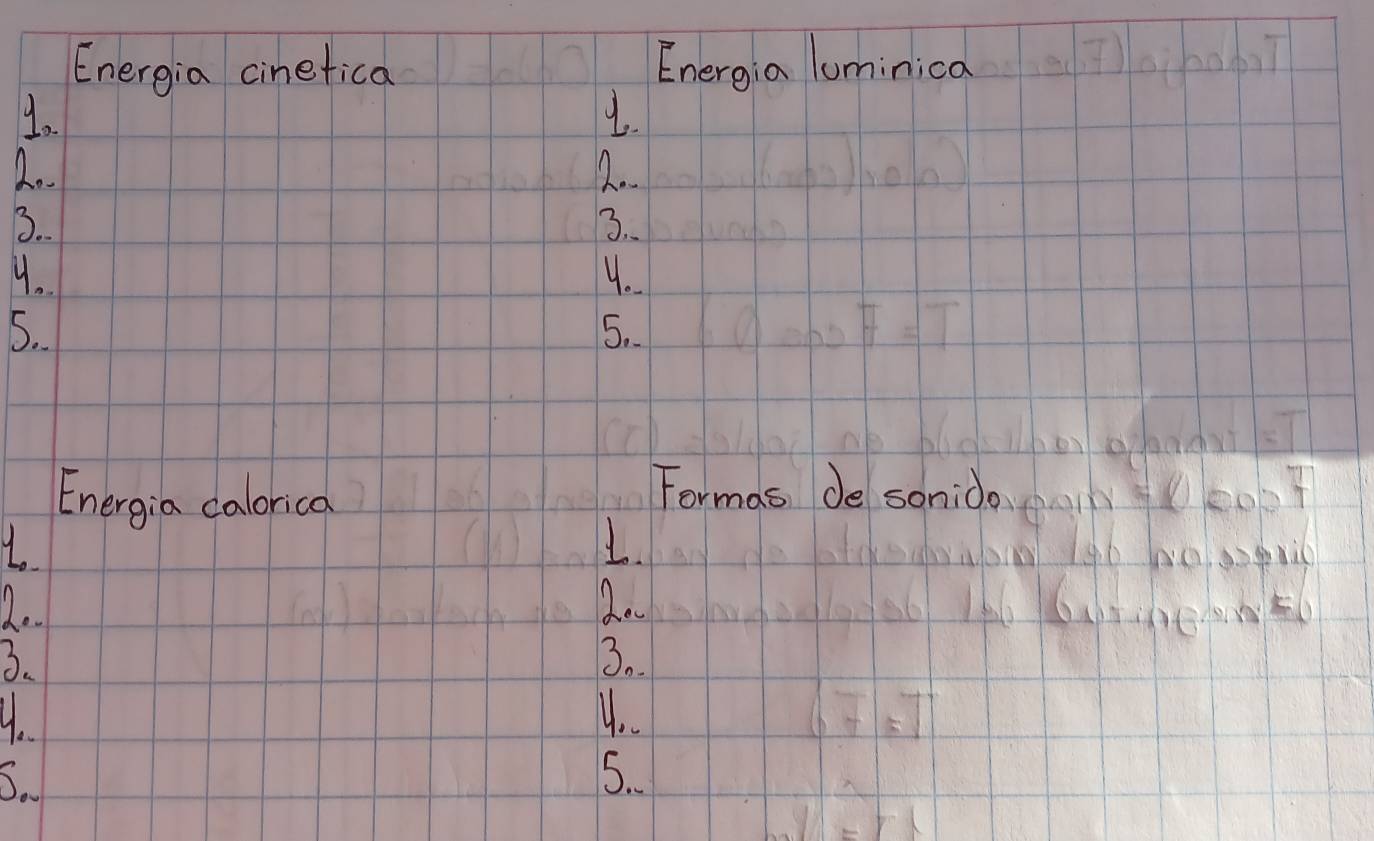 Energia cinetica
1.-
2.-
3.-
4.-
5.-
Energia luminica
1.-
2.-
3.-
4.-
5.-
Energia calorica
1.-
2.-
3.-
4.-
5.-
Formas de sonido
1.-
2.-
3.-
4.-
5.-